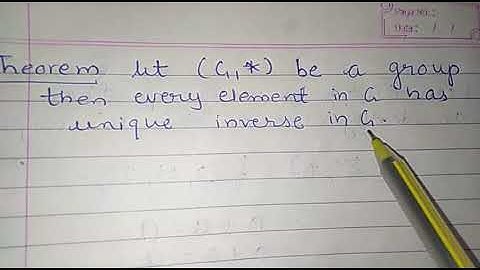 Theorem let (G,*) be a group
then every element in G has
unique inverse in G.